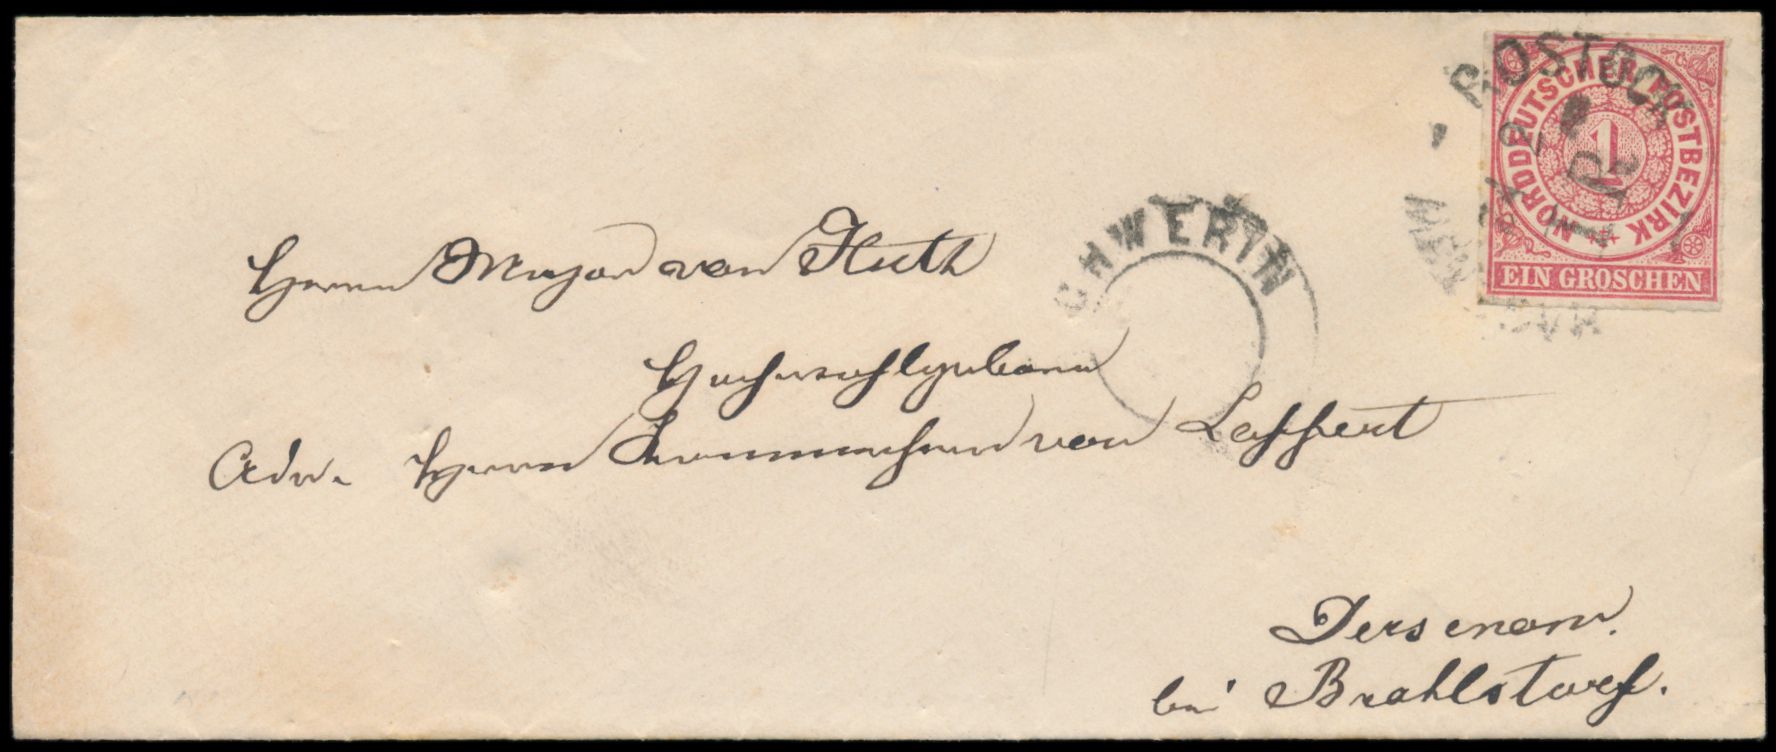 ROSTOCK
NORDDEUTSCHER POSTBEZIRK
1
EIN GROSCHEN
CHWERIN
Herrn Major von Huth
Hochwohlgeboren
Adr. Herrn Kammerherrn von Laffert
Dersenow.
bei Brahlstorf.